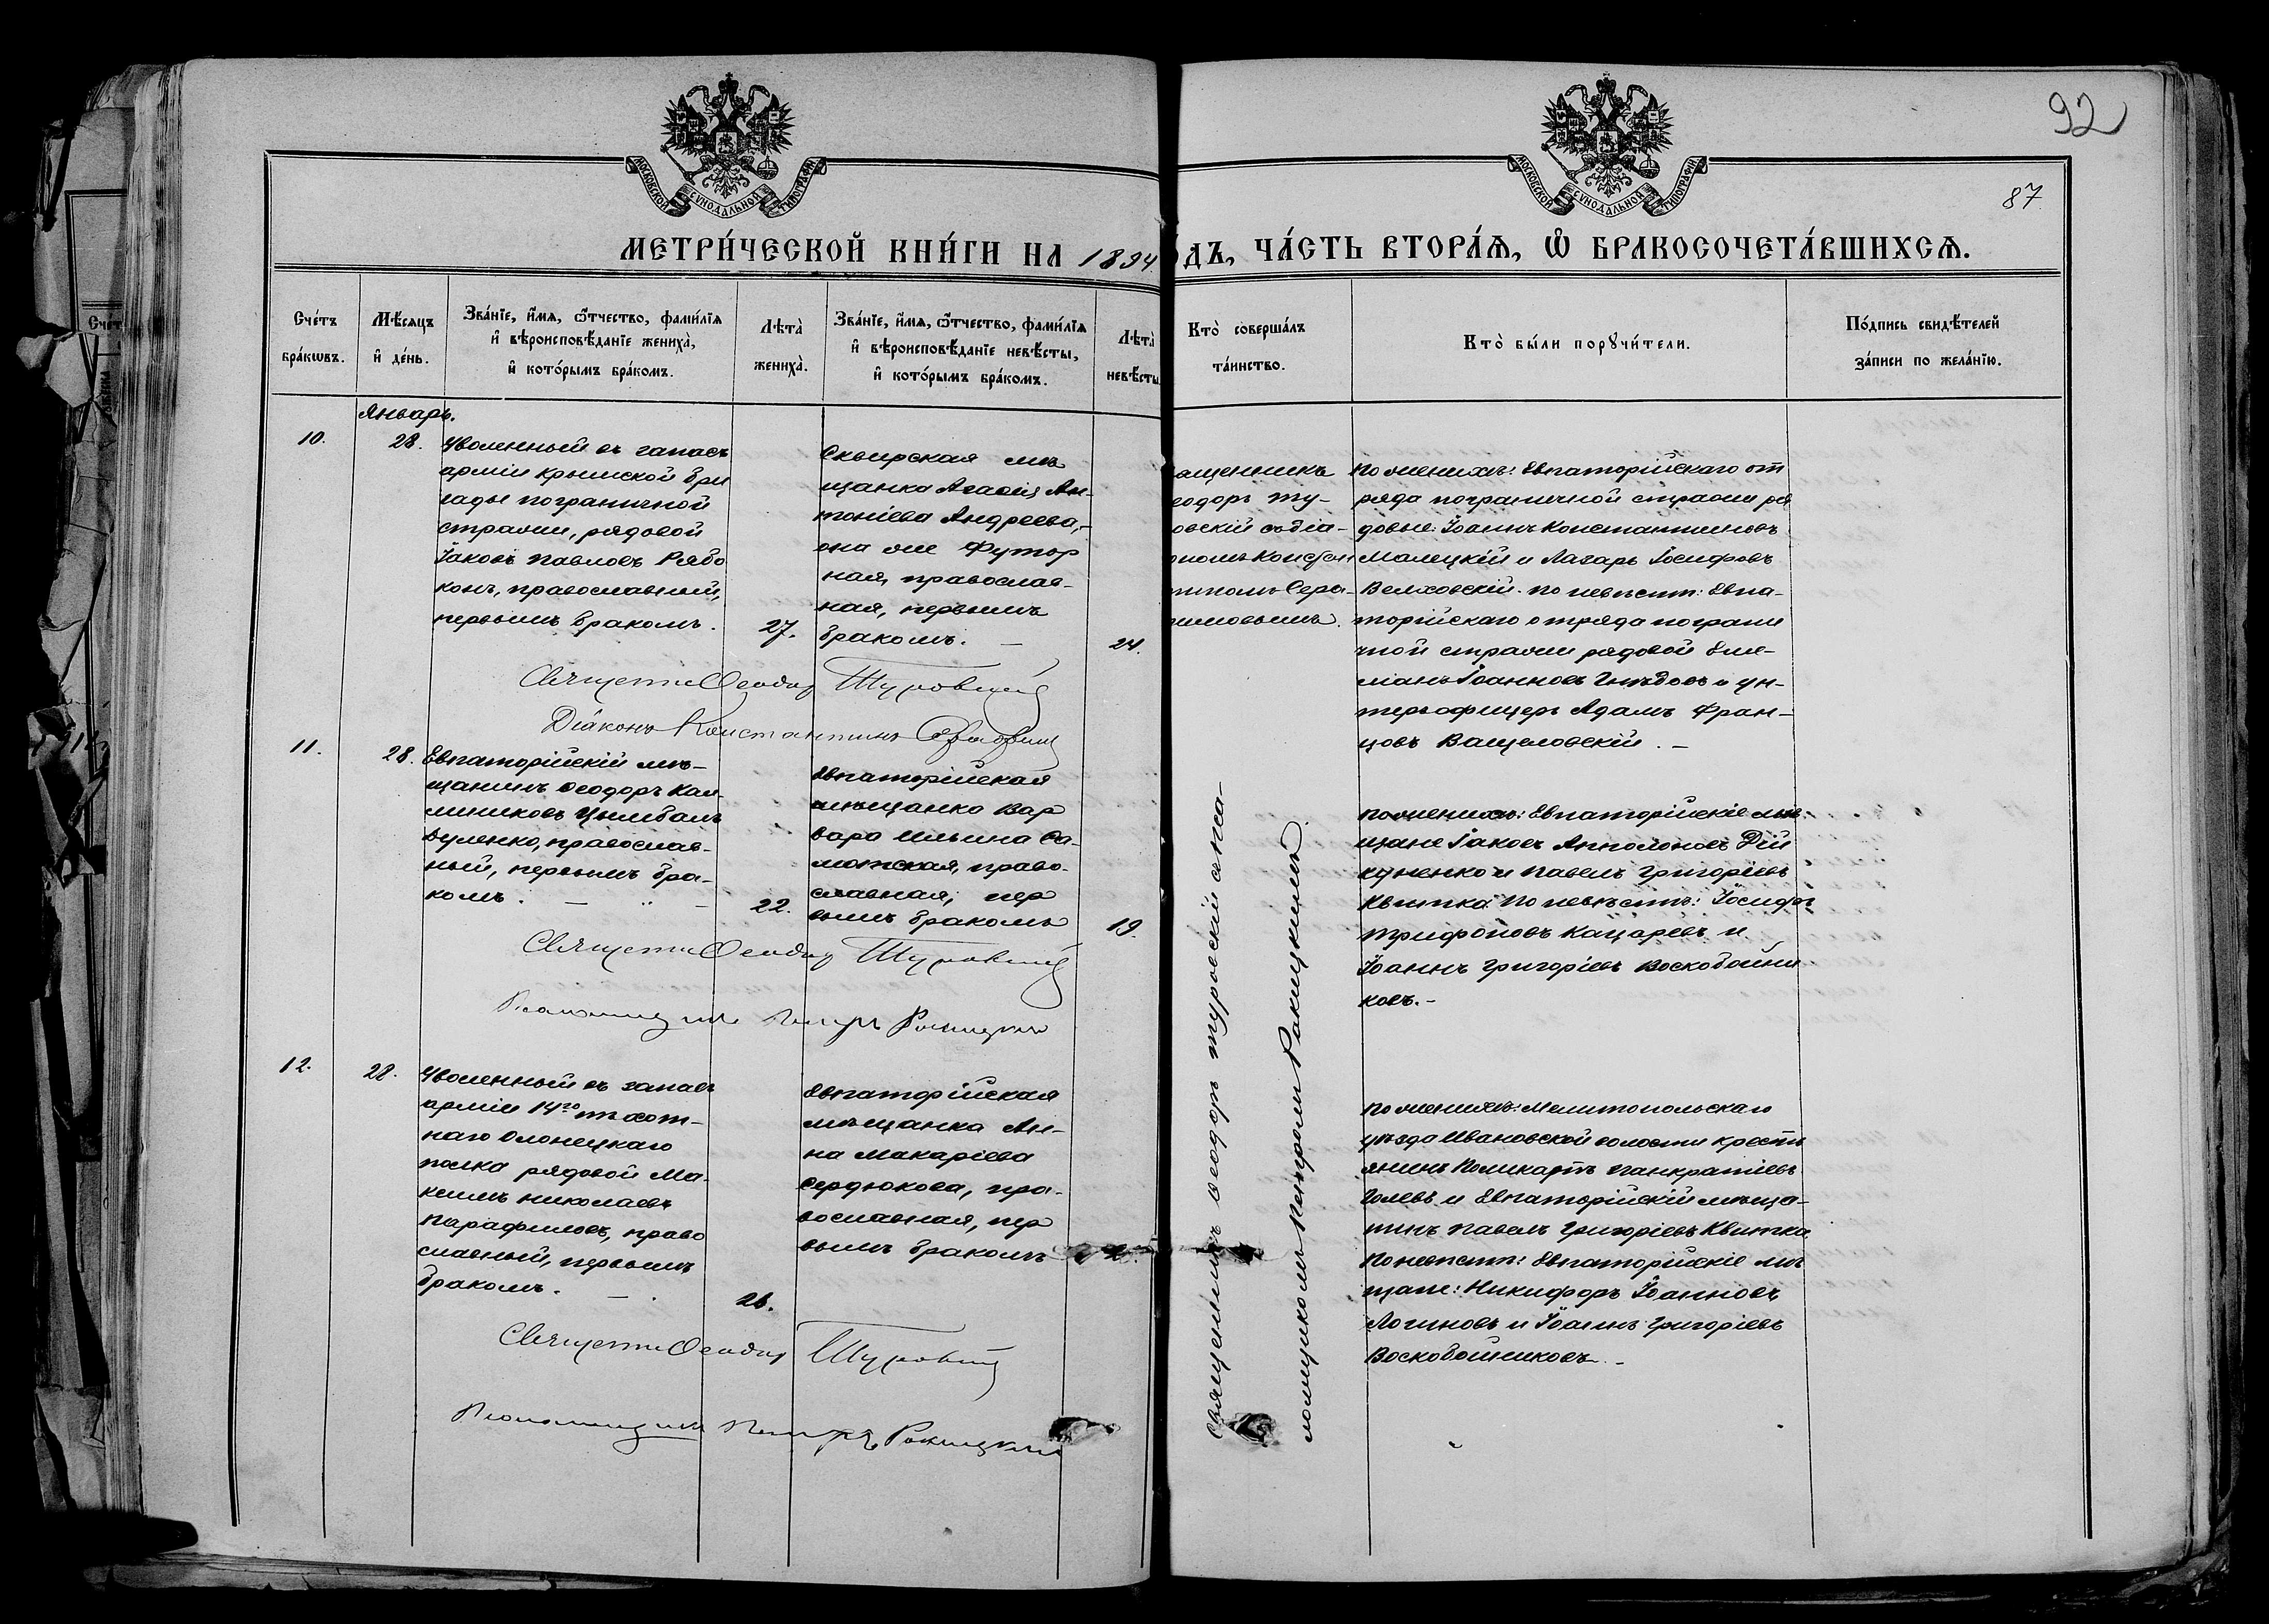 92
87
МОСКОВСКОЙ СѴНОДАЛЬНОЙ ТИПОГРАФІИ
МОСКОВСКОЙ СѴНОДАЛЬНОЙ ТИПОГРАФІИ
МЕТРИ́ЧЕСКОЙ КНИ́ГИ НА 1894
ДЪ, ЧА́СТЬ ВТОРА́Ѧ, Ѽ БРАКОСОЧЕТА́ВШИХСѦ.
Сче́тъ
бра́кѡвъ.
Мѣ́сяцъ
и҆ де́нь.
Зва́нїе, и҆́мя, ѻ҆́тчество, фами́лїя
и҆ вѣроисповѣ́данїе жениха̀,
и҆ кото́рымъ бра́комъ.
Лѣта̀
жениха̀.
Зва́нїе, и҆́мя, ѻ҆́тчество, фами́лїя
и҆ вѣроисповѣ́данїе невѣ́сты,
и҆ кото́рымъ бра́комъ.
Лѣта̀
невѣ́сты
Кто̀ соверша́лъ
та́инство.
Кто̀ бы́ли порꙋчи́тели.
По́дпись свидѣ́телей
за́писи по жела́нїю.
Январь.
10.
28.
Уволенный въ запасъ
арміи Крымской бри
гады пограничной
стражи, рядовой
Іаковъ Павловъ Рябо
конь, православный,
первымъ бракомъ.
27.
Сквирская мѣ
щанка Агафія Ан-
тоніева Андреева,-
она же Футор
ная, православ-
ная, первымъ
бракомъ. —
24.
ащенникъ
еодоръ Ту-
овскій съ діа-
ономъ Констан
тиномъ Сера-
имовымъ.
По женихѣ: Евпаторійскаго от
ряда пограничной стражи ря
довые: Іоаннъ Константиновъ
Малецкій и Лазарь Іосифовъ
Велховскій. По невѣстѣ: Евпа-
торійскаго отряда погранич
чной стражи рядовой Еме-
ліанъ Іоанновъ Гнѣдовъ и ун-
теръ офицеръ Адамъ Фран-
цовъ Вацеловскій. —
Священн Ѳеодоръ Туровскій
Діаконъ Константинъ
11.
28.
Евпаторійскій мѣ-
щанинъ Ѳеодоръ Кал-
линиковъ Цымбалъ
Дуленко, православ-
ный, первымъ бра-
комъ. —
22.
Евпаторійская
мѣщанка Вар
вара Ильина Са-
мотская, право-
славная, пер
вымъ бракомъ
19.
Священникъ Ѳеодоръ Туровскій съ пса-
ломщикомъ Петромъ Ракицкимъ.
По женихѣ: Евпаторійскіе мѣ-
щане Іаковъ Апполоновъ Дій
куненко и Павелъ Григоріевъ
Квитка. По невѣстѣ: Іосифъ
Трифоновъ Кацаревъ и
Іоаннъ Григоріевъ Воскобойни-
ковъ. -
Священн Ѳеодоръ Туровскій
Псаломщикъ Петръ Ракицкій
12.
28.
Уволенный въ запасъ
арміи 14го пѣхот-
наго Олонецкаго
полка рядовой Ма-
ксимъ Николаевъ
Парафиловъ, право
славный, первымъ
бракомъ. — .
26.
Евпаторійская
мѣщанка Ан-
на Макаріева
Сердюкова, пра-
вославная, пер
вымъ бракомъ
По женихѣ: Мелитопольскаго
уѣзда Ивановской волости кресть
янинъ Поликарпъ Панкратіевъ
Голевъ и Евпаторійскій мѣща-
нинъ Павелъ Григоріевъ Квитка
По невѣстѣ: Евпаторійскіе мѣ
щане: Никифоръ Іоанновъ
Логиновъ и Іоаннъ Григоріевъ
Воскобойниковъ. -
Священн Ѳеодоръ Туровскій
Псаломщикъ Петръ Ракицкій